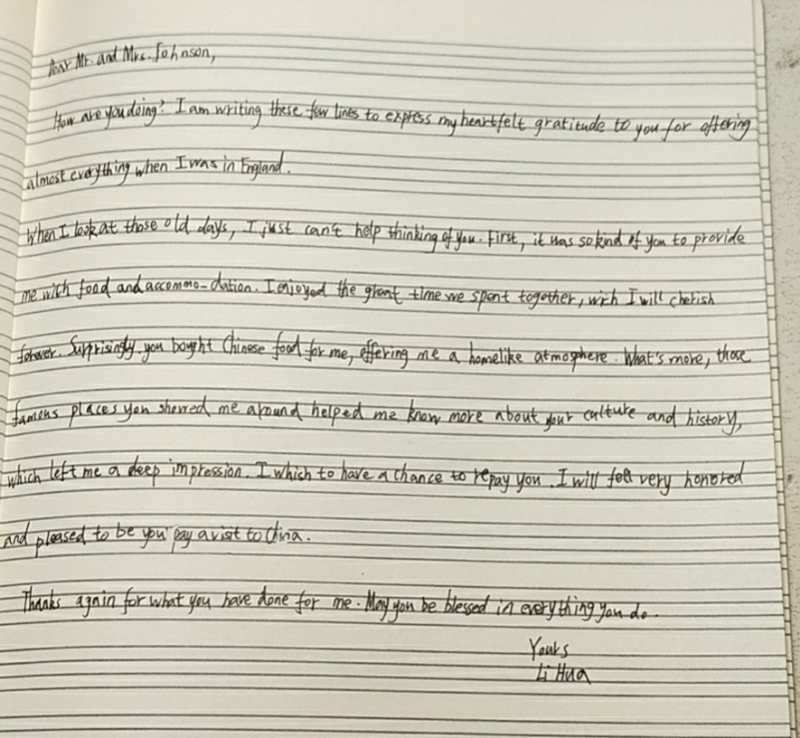 Dear Mr. and Mrs. Johnson,
How are you doing? I am writing these few lines to express my heartfelt gratitude to you for offering
almost everything when I was in England.
When I look at those old days, I just can't help thinking of you. First, it was so kind of you to provide
me with food and accommo-dation. I enjoyed the great time we spent together, wich I will cherish
forever. Surprisingly you bought Chinese food for me, offering me a homelike atmosphere. What's more, those
famous places you showed me around helped me know more about your culture and history,
which left me a deep impression. I which to have a chance to repay you. I will feel very honored
and pleased to be you pay a visit to China.
Thanks again for what you have done for me. May you be blessed in everything you do.
Yours
Li Hua